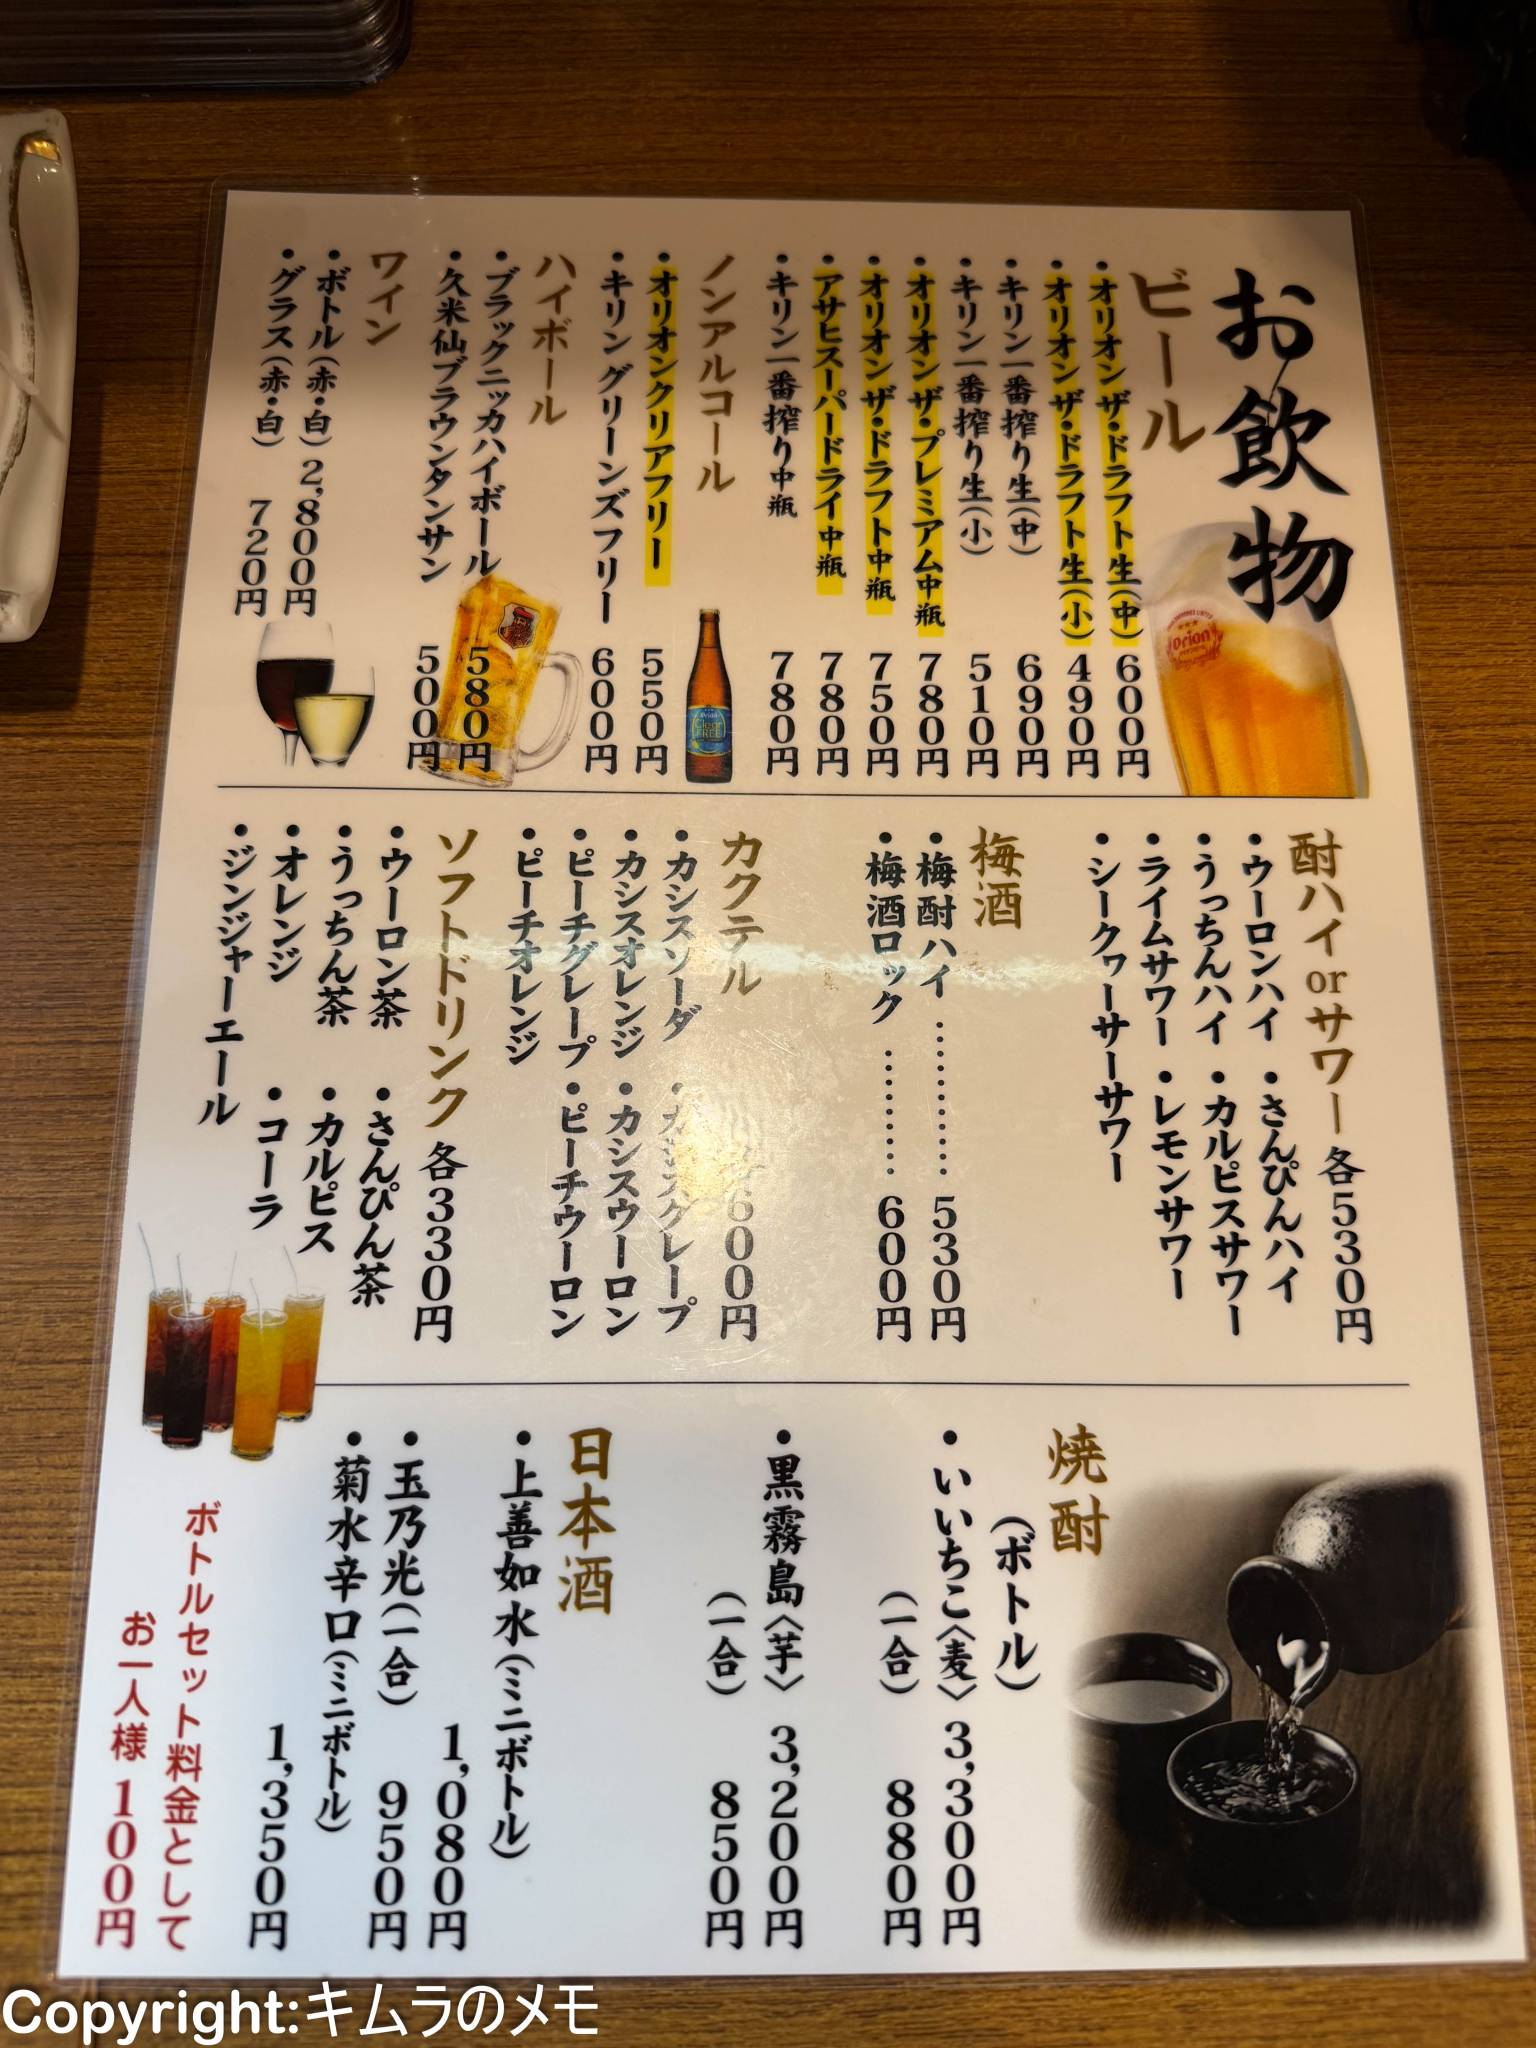 お飲物
ビール
・オリオンザ・ドラフト生(中) 600円
・オリオンザ・ドラフト生(小) 490円
・キリン一番搾り生(中) 690円
・キリン一番搾り生(小) 510円
・オリオンザ・プレミアム中瓶 780円
・オリオンザ・ドラフト中瓶 750円
・アサヒスーパードライ中瓶 780円
・キリン一番搾り中瓶 780円
ノンアルコール
・オリオンクリアフリー 550円
・キリングリーンズフリー 600円
ハイボール
・ブラックニッカハイボール 580円
・久米仙ブラウンタンサン 500円
ワイン
・ボトル(赤・白) 2,800円
・グラス(赤・白) 720円
酎ハイorサワー 各530円
・ウーロンハイ ・さんぴんハイ
・うっちんハイ ・カルピスサワー
・ライムサワー ・レモンサワー
・シークヮーサーサワー
梅酒
・梅酎ハイ ………… 530円
・梅酒ロック ………… 600円
カクテル 600円
・カシスソーダ ・カシスグレープ
・カシスオレンジ ・カシスウーロン
・ピーチグレープ ・ピーチウーロン
・ピーチオレンジ
ソフトドリンク 各330円
・ウーロン茶 ・さんぴん茶
・うっちん茶 ・カルピス
・オレンジ ・コーラ
・ジンジャーエール
焼酎
(ボトル)
・いいちこ〈麦〉 3,300円
(一合) 880円
・黒霧島〈芋〉 3,200円
(一合) 850円
日本酒
・上善如水(ミニボトル)
1,080円
・玉乃光(一合) 950円
・菊水辛口(ミニボトル)
1,350円
ボトルセット料金として
お一人様 100円
Orion
Orion
Clear
FREE
Copyright:キムラのメモ